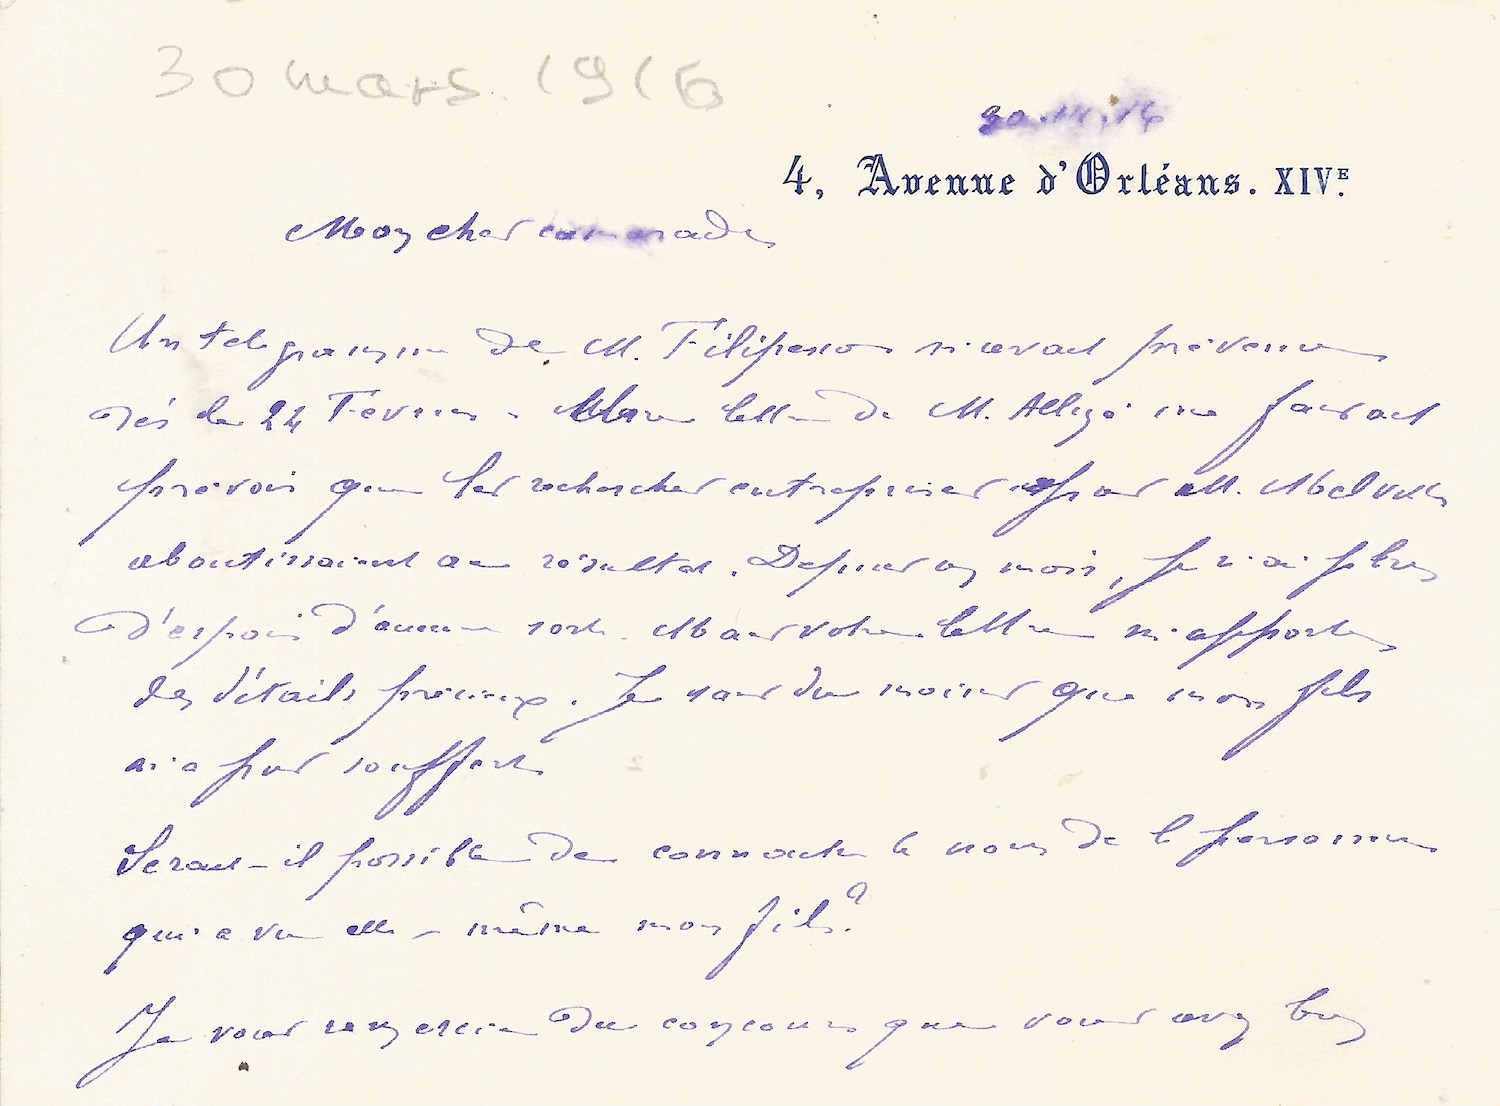 30 mars 1916
4, Avenue d'Orléans. XIVE.
Mon cher camarade
Un télégramme de M. Filipesco m'avait prévenu
dès le 24 Février. Une lettre de M. me faisait
prévoir que les recherches entreprises par M.
aboutissaient au résultat. Depuis un mois, je n'ai plus
d'espoir d'aucune sorte. Mais votre lettre m'apporte
des détails précieux. Je sais du moins que mon fils
n'a pas souffert.
Serait-il possible de connaître le nom de la personne
qui a vu elle-même mon fils?
Je vous remercie du concours que vous avez bien